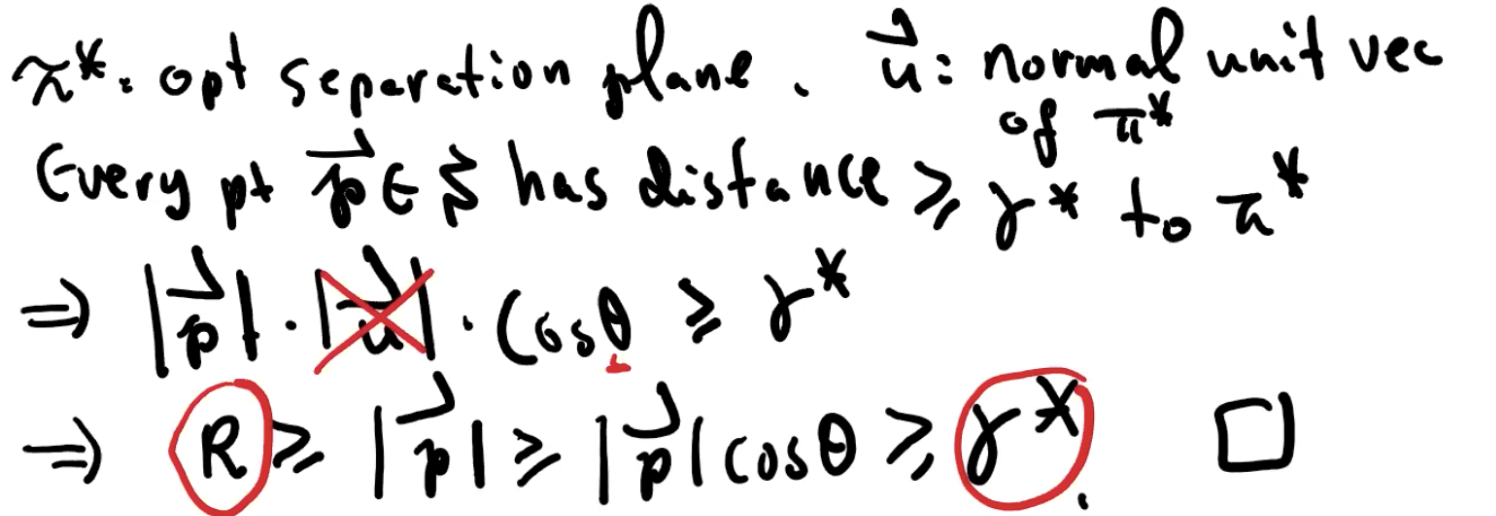 π*: opt separation plane. u⃗: normal unit vec
of π*
Every pt p⃗ ∈ S has distance ≥ γ* to π*
⇒ |p⃗| · |u⃗| · cosθ ≥ γ*
⇒ R ≥ |p⃗| ≥ |p⃗| cosθ ≥ γ*. □